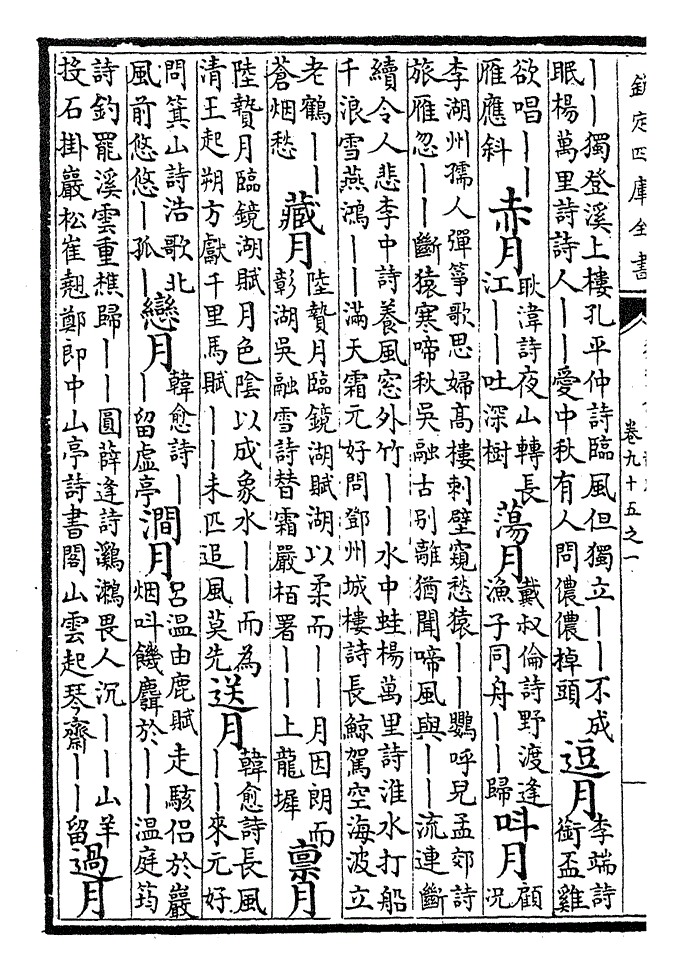 欽定四庫全書
卷九十五之一
丨丨獨登溪上樓孔平仲詩臨風但獨立丨丨不成
眠楊萬里詩詩人丨丨愛中秋有人問儂儂掉頭
逗月
李端詩
銜盃雞
欲唱丨丨
雁應斜
赤月
耿湋詩夜山轉長
江丨丨吐深樹
蕩月
戴叔倫詩野渡逢
漁子同舟丨丨歸
呌月
顧
况
李湖州孺人彈箏歌思婦髙樓刺壁窺愁猿丨丨鸚呼兒孟郊詩
旅雁忽丨丨斷猿寒啼秋吳融古别離猶聞啼風與丨丨流連斷
續令人悲李中詩養風窓外竹丨丨水中蛙楊萬里詩淮水打船
千浪雪燕鴻丨丨滿天霜元好問鄧州城樓詩長鯨駕空海波立
老鶴丨丨
蒼烟愁
藏月
陸贄月臨鏡湖賦湖以柔而丨丨月因朗而
彰湖吳融雪詩替霜嚴栢署丨丨上龍墀
禀月
陸贄月臨鏡湖賦月色陰以成象水丨丨而為
清王起朔方獻千里馬賦丨丨未匹追風莫先
送月
韓愈詩長風
丨丨來元好
問箕山詩浩歌北
風前悠悠丨孤丨
戀月
韓愈詩丨
丨留虚亭
澗月
呂温由鹿賦走駭侣於巖
烟呌饑麏於丨丨温庭筠
詩釣罷溪雲重樵歸丨丨圓薛逢詩鸂鶒畏人沉丨丨山羊
投石掛巖松崔翹鄭郎中山亭詩書閣山雲起琴齋丨丨留
過月